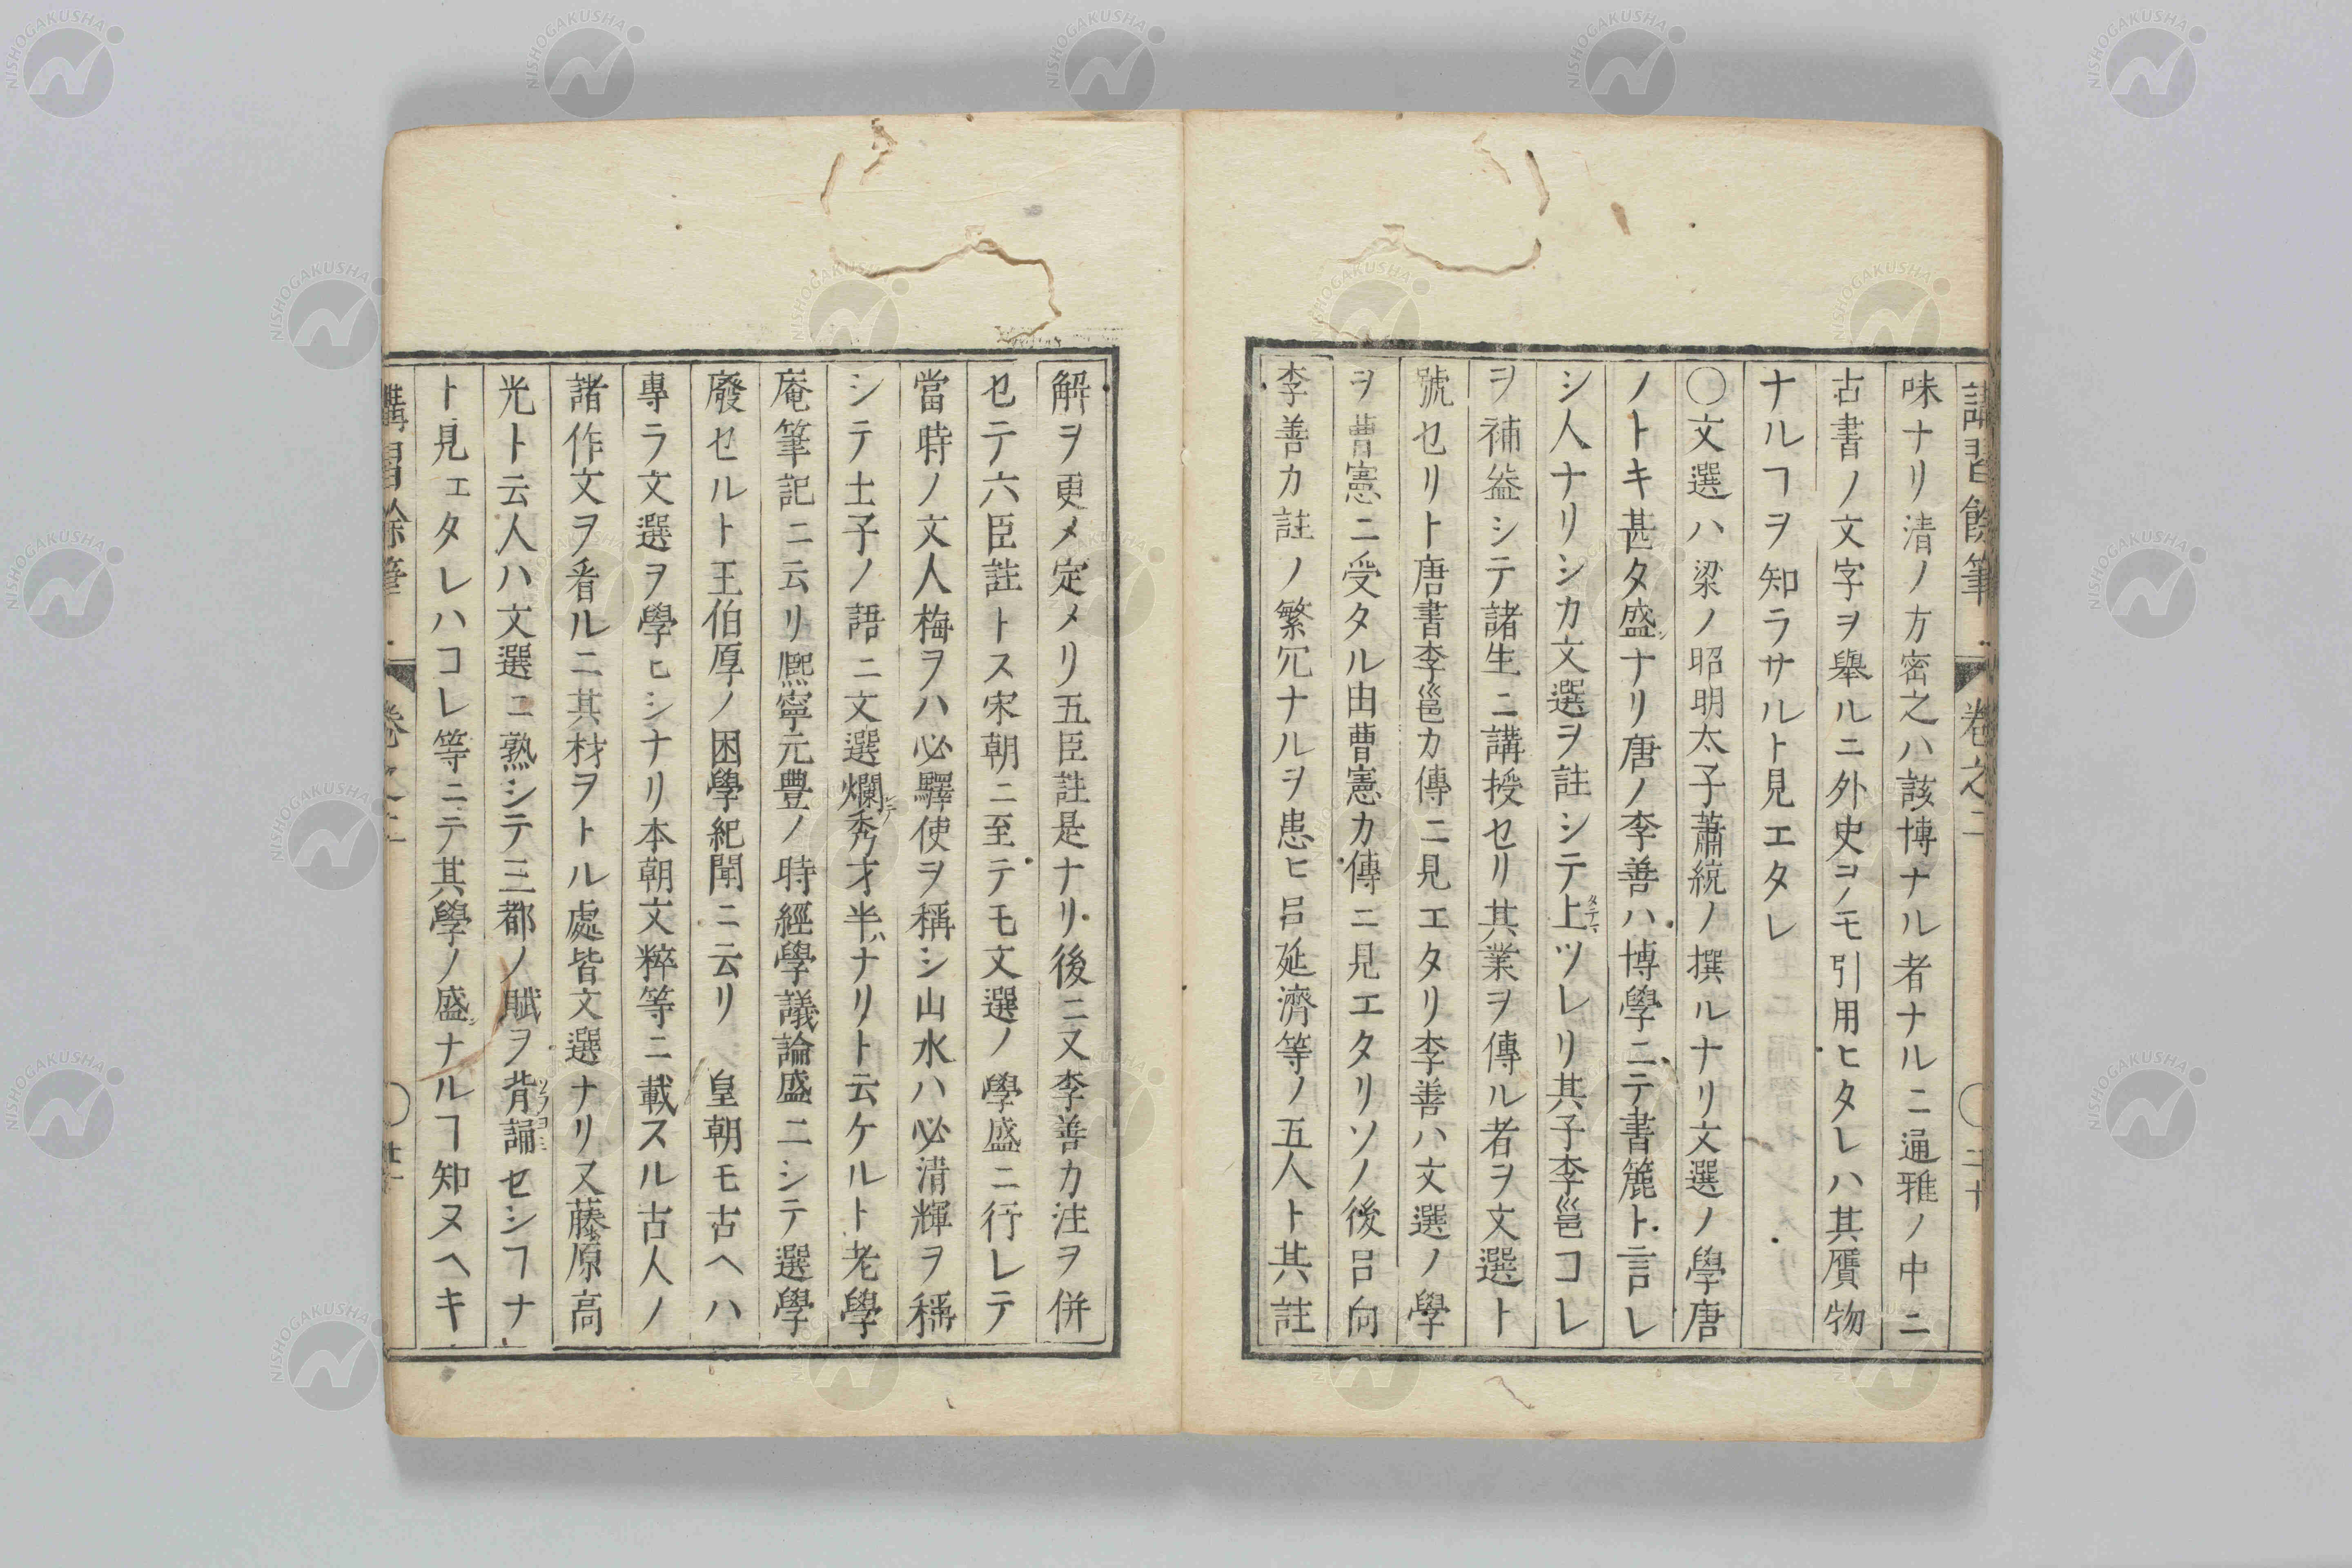 講習餘筆 卷之二 ○二十
味ナリ清ノ方密之ハ該博ナル者ナルニ通雅ノ中ニ
古書ノ文字ヲ舉ルニ外史ヨノモ引用ヒタレハ其贋物
ナルヿヲ知ラサルト見エタレ
○文選ハ梁ノ昭明太子蕭統ノ撰ルナリ文選ノ學唐
ノトキ甚タ盛ンナリ唐ノ李善ハ博學ニテ書簏ト言レ
シ人ナリシカ文選ヲ註シテ上タテマツレリ其子李邕コレ
ヲ補益シテ諸生ニ講授セリ其業ヲ傳ル者ヲ文選ト
號セリト唐書李邕カ傳ニ見エタリ李善ハ文選ノ學
ヲ曹憲ニ受タル由曹憲カ傳ニ見エタリソノ後呂向
李善カ註ノ繁冗ナルヲ患ヒ呂延濟等ノ五人ト其註
解ヲ更メ定メリ五臣註是ナリ後ニ又李善カ注ヲ併
セテ六臣註トス宋朝ニ至テモ文選ノ學盛ニ行レテ
當時ノ文人梅ヲハ必驛使ヲ稱シ山水ハ必清輝ヲ稱
シテ士子ノ語ニ文選爛シテ秀才半ハナリト云ケルト老學
庵筆記ニ云リ熙寧元豊ノ時經學議論盛ニシテ選學
廢セルト王伯厚ノ困學紀聞ニ云リ 皇朝モ古ヘハ
專ラ文選ヲ學ヒシナリ本朝文粹等ニ載スル古人ノ
諸作文ヲ看ルニ其材ヲトル處皆文選ナリ又藤原高
光ト云人ハ文選ニ熟シテ三都ノ賦ヲ背ソラヨミ誦セシヿナ
ト見エタレハコレ等ニテ其學ノ盛ンナルヿ知ヌヘキ
講習餘筆 卷之二 ○廿一
NISHOGAKUSHA